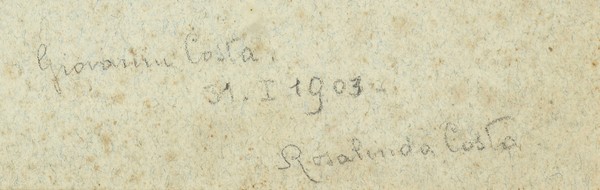 Giovanni Costa.
31. I 1903
Rosalinda Costa